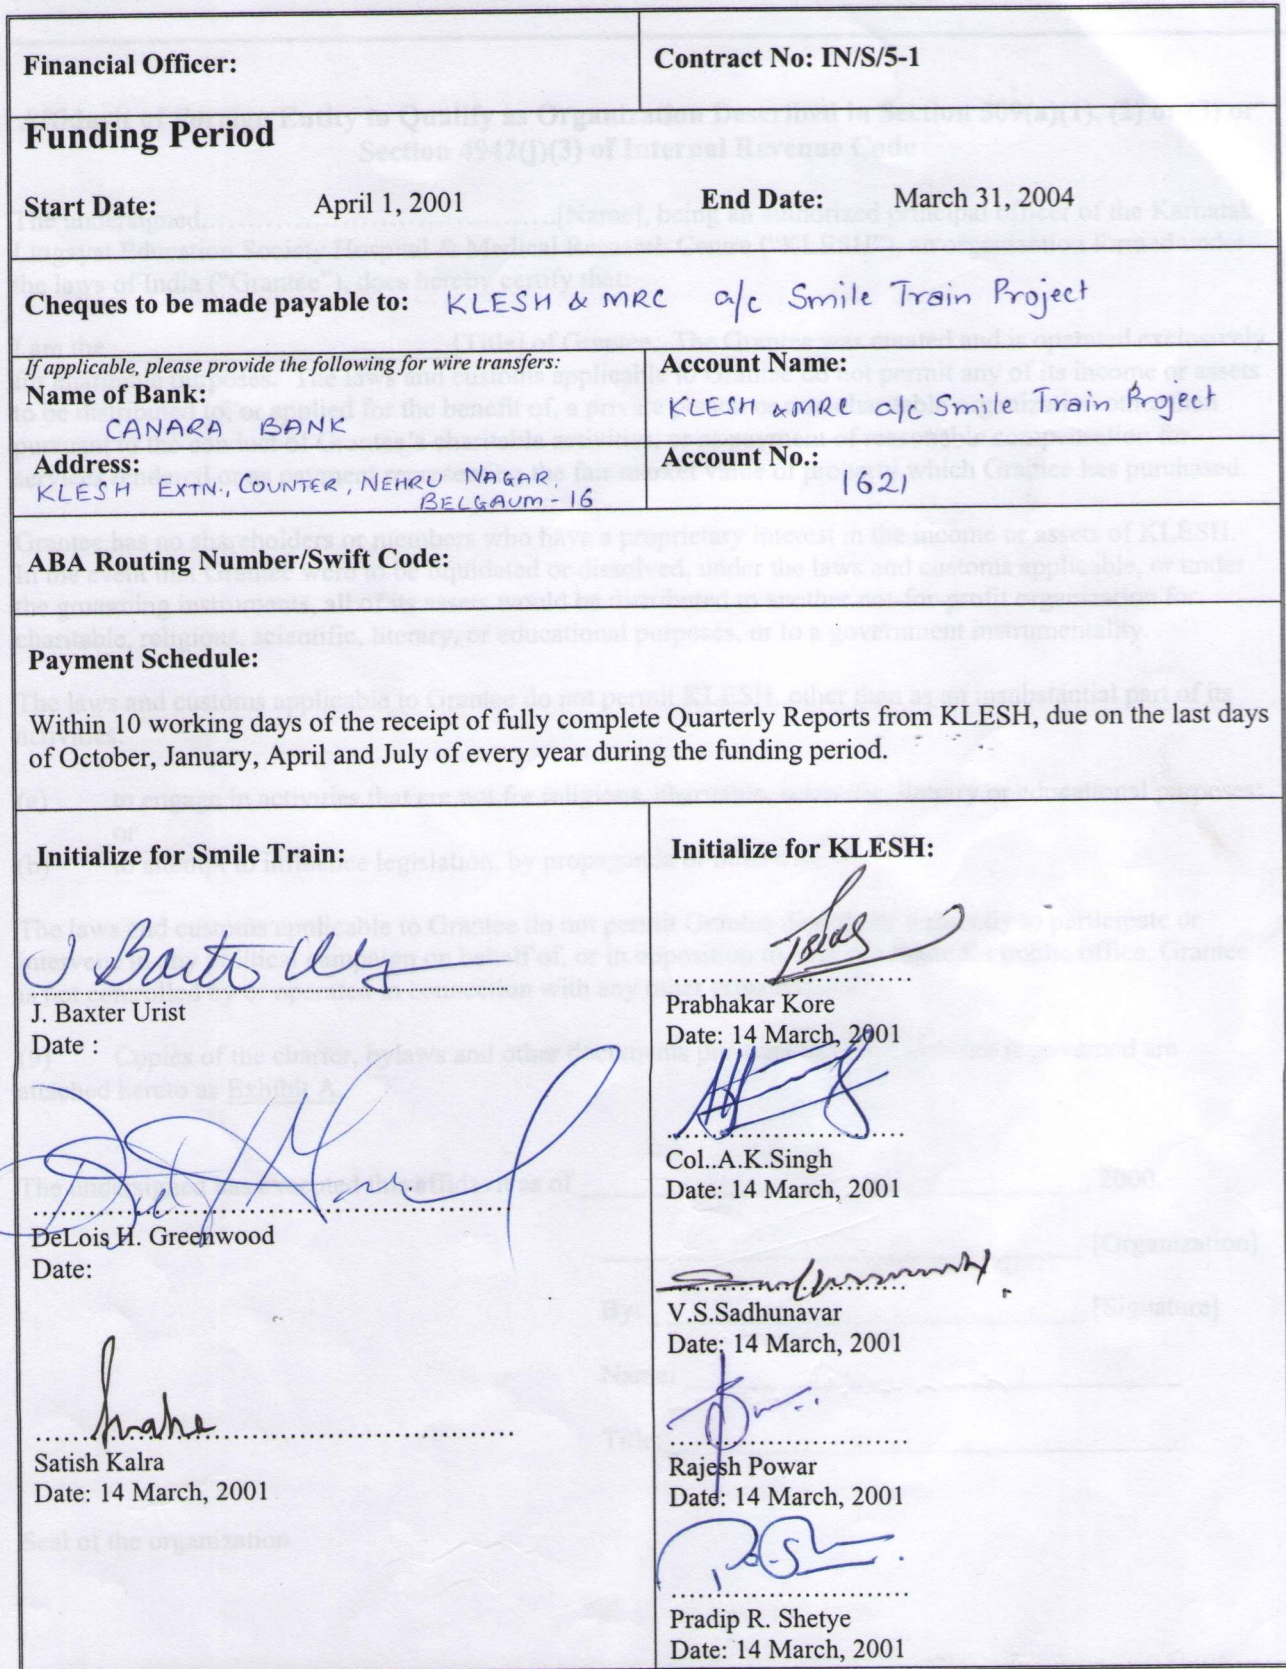 Financial Officer:
Contract No: IN/S/5-1
Funding Period
Start Date: April 1, 2001 End Date: March 31, 2004
Cheques to be made payable to: KLESH & MRC a/c Smile Train Project
If applicable, please provide the following for wire transfers:
Name of Bank:
CANARA BANK
Address:
KLESH EXTN., COUNTER, NEHRU NAGAR,
BELGAUM-16
Account Name:
KLESH & MRC a/c Smile Train Project
Account No.:
1621
ABA Routing Number/Swift Code:
Payment Schedule:
Within 10 working days of the receipt of fully complete Quarterly Reports from KLESH, due on the last days
of October, January, April and July of every year during the funding period.
Initialize for Smile Train:
J. Baxter Urist
Date :
DeLois H. Greenwood
Date:
Satish Kalra
Date: 14 March, 2001
Initialize for KLESH:
Prabhakar Kore
Date: 14 March, 2001
Col..A.K.Singh
Date: 14 March, 2001
V.S.Sadhunavar
Date: 14 March, 2001
Rajesh Powar
Date: 14 March, 2001
Pradip R. Shetye
Date: 14 March, 2001